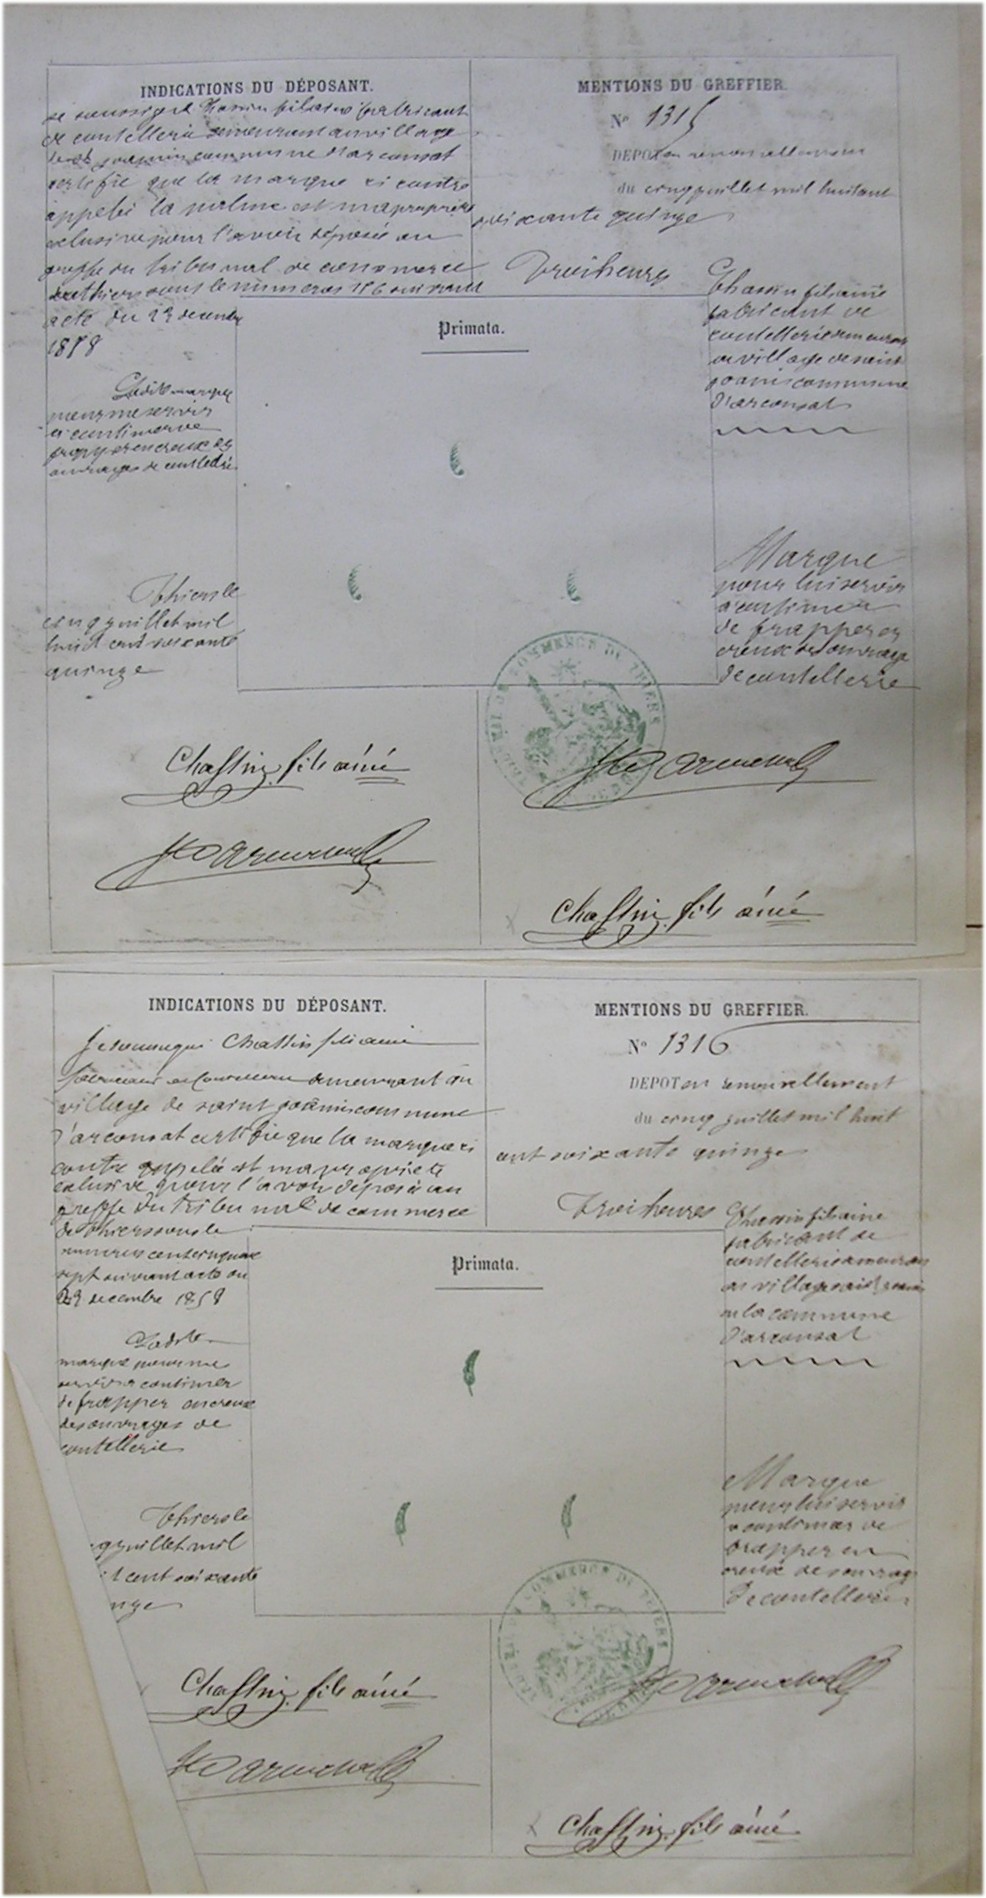 INDICATIONS DU DÉPOSANT.
je soussigné Chassin fils ainé fabricant
de coutellerie demeurant au village
de st joannis commune d'arconsat
certifie que la marque ci contre
appelée la palme est ma propriété
exclusive pour l'avoir déposée au
greffe du tribunal de commerce
de thiers sous le numeros 156 suivant
acte du 23 decembre
1858
Ladite marque
pour me servir
a continuer de
frapper en creux des
ouvrages de coutellerie
Thiers le
cinq juillet mil
huit cent soixante
quinze
MENTIONS DU GREFFIER.
N° 1315
DEPOT en renouvellement
du cinq juillet mil huit cent
soixante quinze
Trois heures
Chassin fils ainé
fabricant de
coutellerie demeurant
au village de saint
joanis commune
d'arconsat
Primata.
Marque
pour lui servir
a continuer
de frapper en
creux des ouvrage
de coutellerie
TRIBUNAL DE COMMERCE DE THIERS
Chassin fils aîné
Chassin fils aîné
INDICATIONS DU DÉPOSANT.
je soussigné Chassin fils ainé
fabricant de Coutellerie demeurant au
village de saint joannis commune
d'arconsat certifie que la marque ci
contre appelée est ma propriete
exclusive pour l'avoir déposée au
greffe du tribunal de commerce
de thiers sous le
numeros cent cinquante
sept suivant acte du
23 decembre 1858
Ladite
marque pour me
servir a continuer
de frapper en creux
des ouvrages de
coutellerie
Thiers le
q juillet mil
it cent soixante
nze
MENTIONS DU GREFFIER.
N° 1316
DEPOT en renouvellement
du cinq juillet mil huit
cent soixante quinze
Trois heures
Chassin fils aine
fabricant de
coutellerie demeurant
au village saint joanis
en la commune
d'arconsat
Primata.
Marque
pour lui servir
a continuer de
frapper en
creux des ouvrage
de coutellerie
TRIBUNAL DE COMMERCE DE THIERS
Chassin fils aîné
Chassin fils aîné